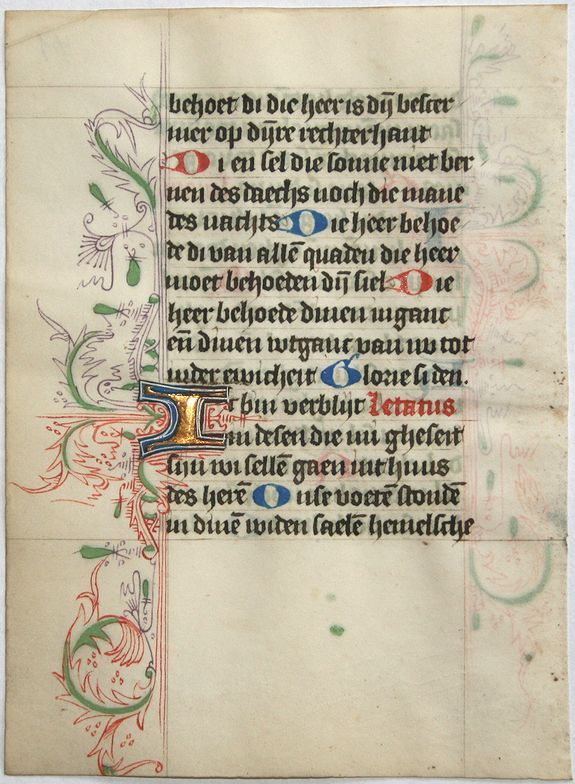 behoet di die heer is dijn bescer
mer op dijnre rechterhant
Di en sel die sonne niet ber
nen des daechs noch die mane
des nachts Die heer behoe
de di van allē quaden die heer
moet behoeden dijn siel Die
heer behoede dinen inganc
eñ dinen wtganc van nv tot
in der ewicheit Glorie si den.
Ic bin verblijt Letatus
in desen die mi gheseit
sijn wi sellē gaen int huus
des herē Onse voetē stondē
in dinē widen saelē hemelsche